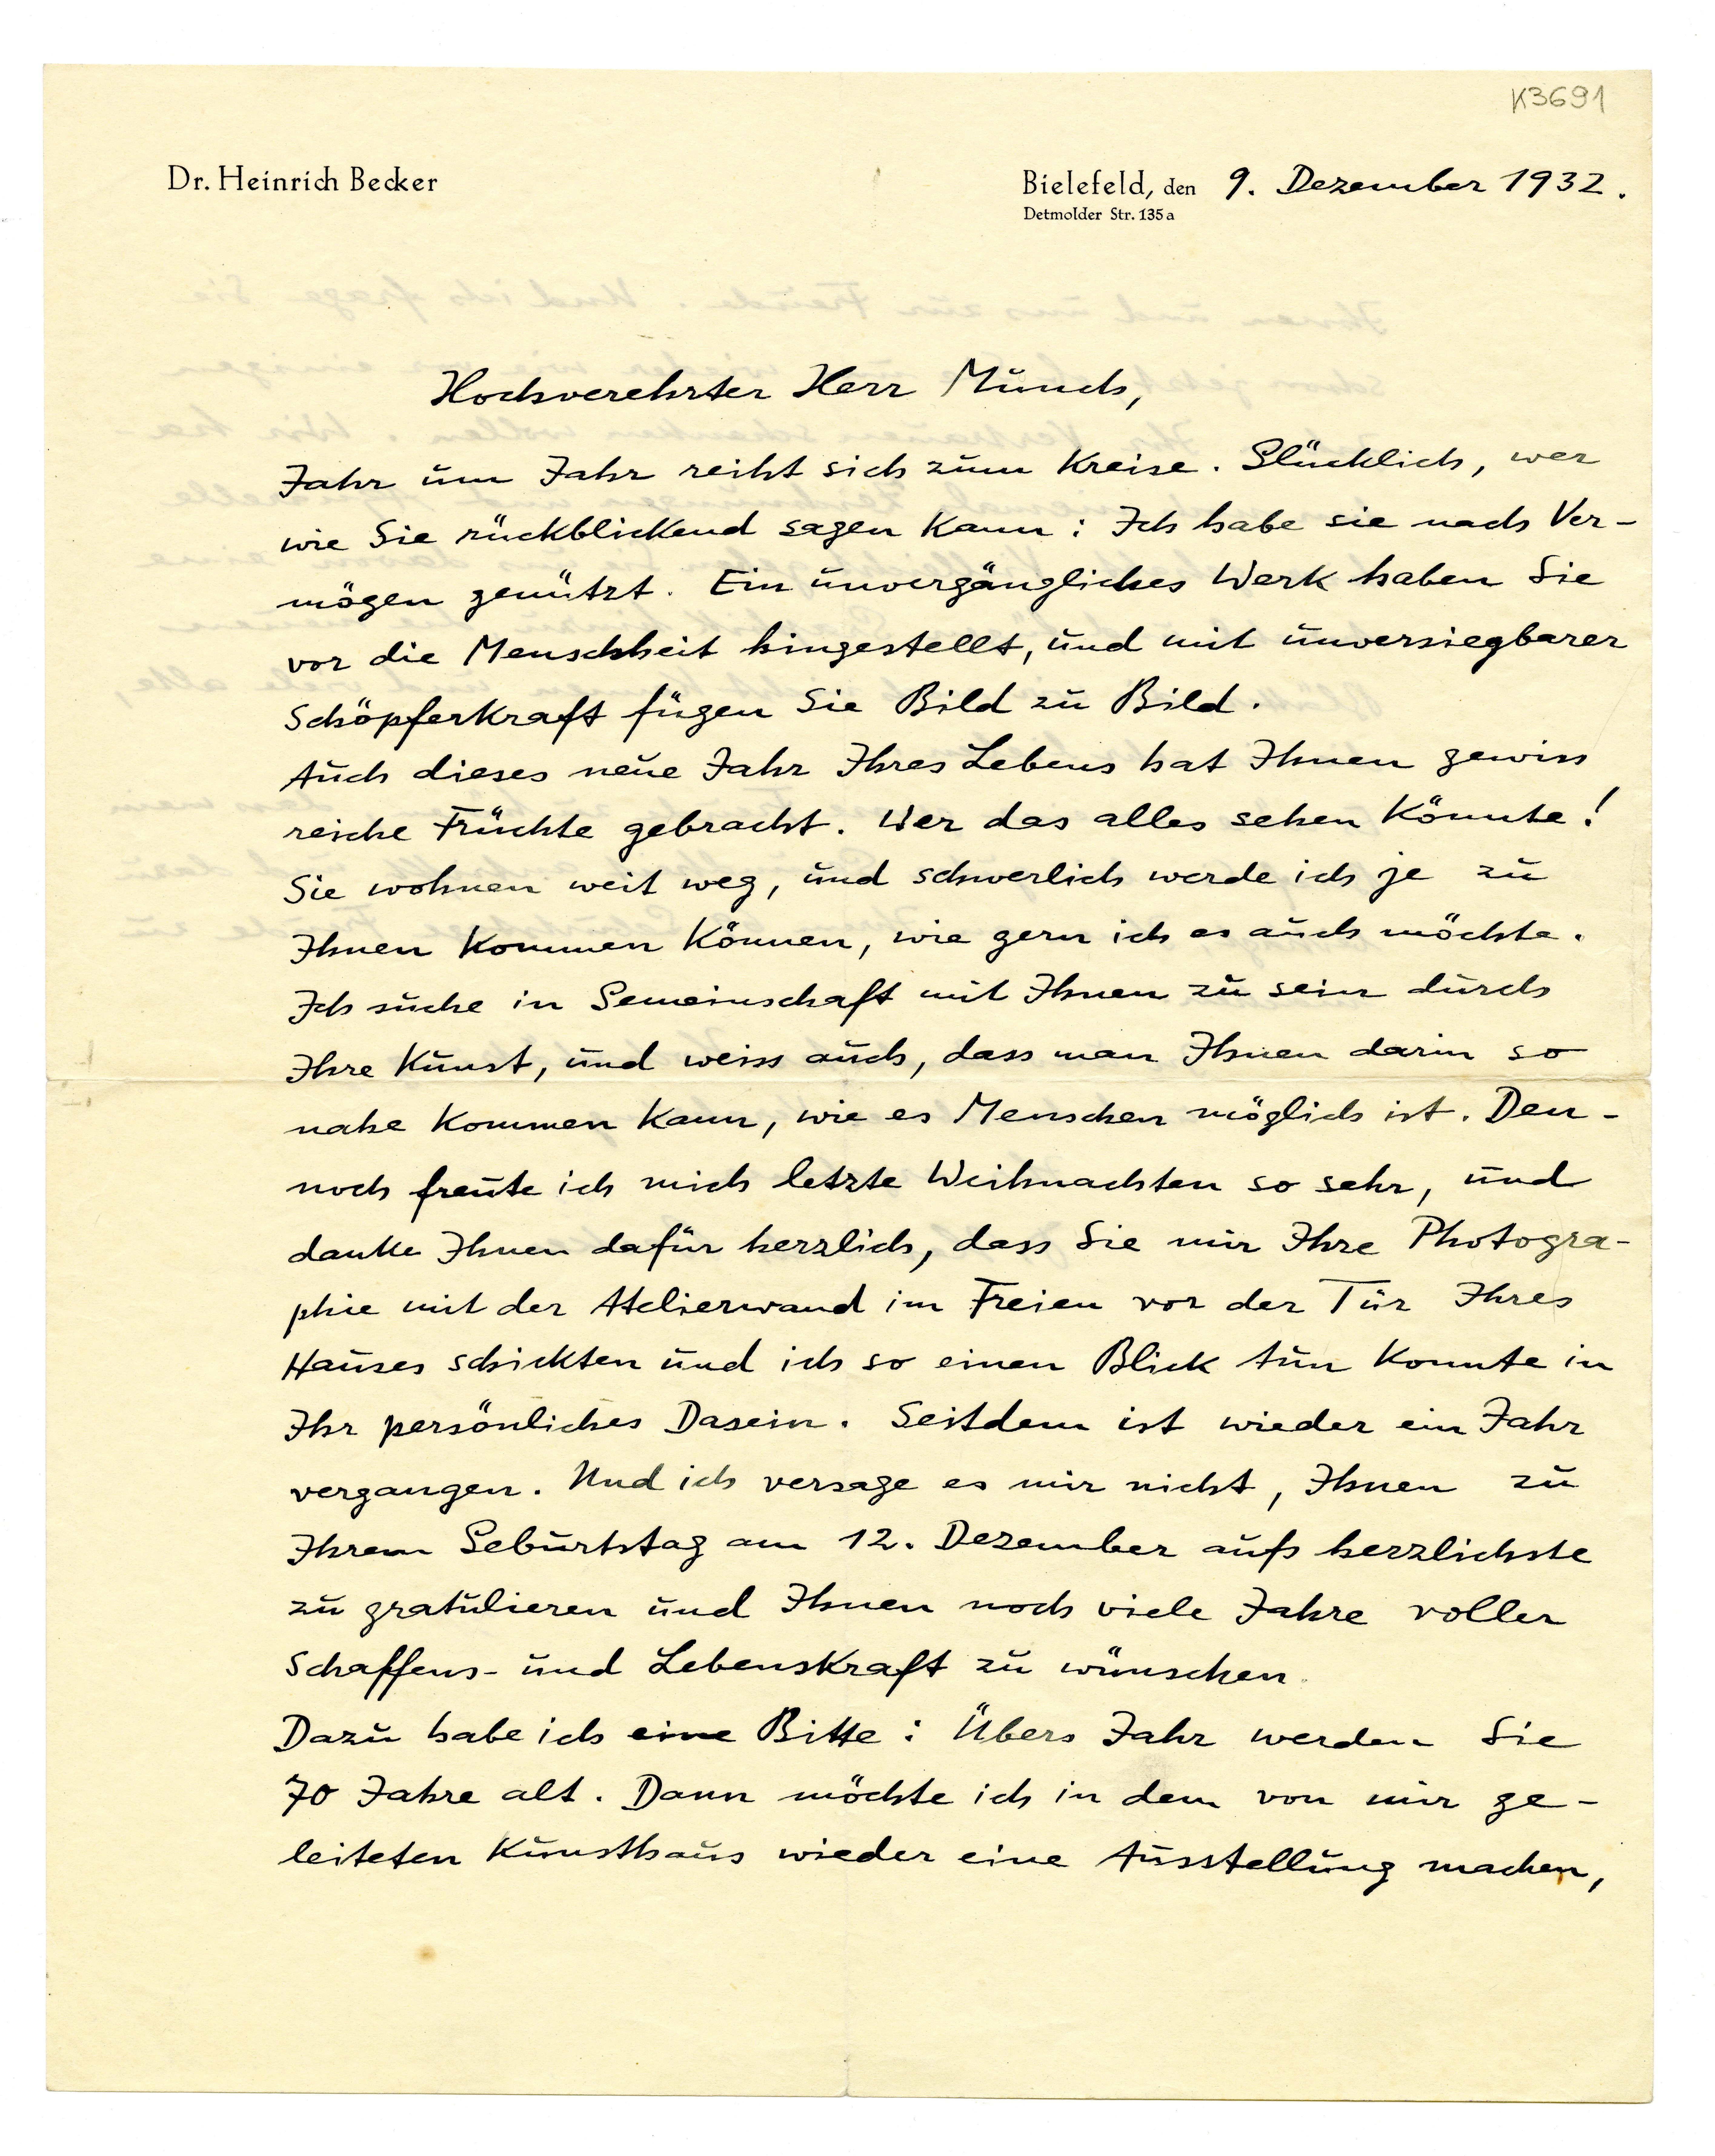 K3691
Dr. Heinrich Becker
Bielefeld, den 9. Dezember 1932.
Detmolder Str. 135a
Hochverehrter Herr Munch,
Jahr um Jahr reiht sich zum Kreise. Glücklich, wer
wie Sie rückblickend sagen kann: Ich habe sie nach Ver-
mögen genützt. Ein unvergängliches Werk haben Sie
vor die Menschheit hingestellt, und mit unversiegbarer
Schöpferkraft fügen Sie Bild zu Bild.
Auch dieses neue Jahr Ihres Lebens hat Ihnen gewiss
reiche Früchte gebracht. Wer das alles sehen könnte!
Sie wohnen weit weg, und schwerlich werde ich je zu
Ihnen kommen können, wie gern ich es auch möchte.
Ich suche in Gemeinschaft mit Ihnen zu sein durch
Ihre Kunst, und weiss auch, dass man Ihnen darin so
nahe kommen kann, wie es Menschen möglich ist. Den-
noch freute ich mich letzte Weihnachten so sehr, und
danke Ihnen dafür herzlich, dass Sie mir Ihre Photogra-
phie mit der Atelierwand im Freien vor der Tür Ihres
Hauses schickten und ich so einen Blick tun konnte in
Ihr persönliches Dasein. Seitdem ist wieder ein Jahr
vergangen. Und ich versage es mir nicht, Ihnen zu
Ihrem Geburtstag am 12. Dezember aufs herzlichste
zu gratulieren und Ihnen noch viele Jahre voller
Schaffens- und Lebenskraft zu wünschen.
Dazu habe ich eine Bitte: Übers Jahr werden Sie
70 Jahre alt. Dann möchte ich in dem von mir ge-
leiteten Kunsthaus wieder eine Ausstellung machen,